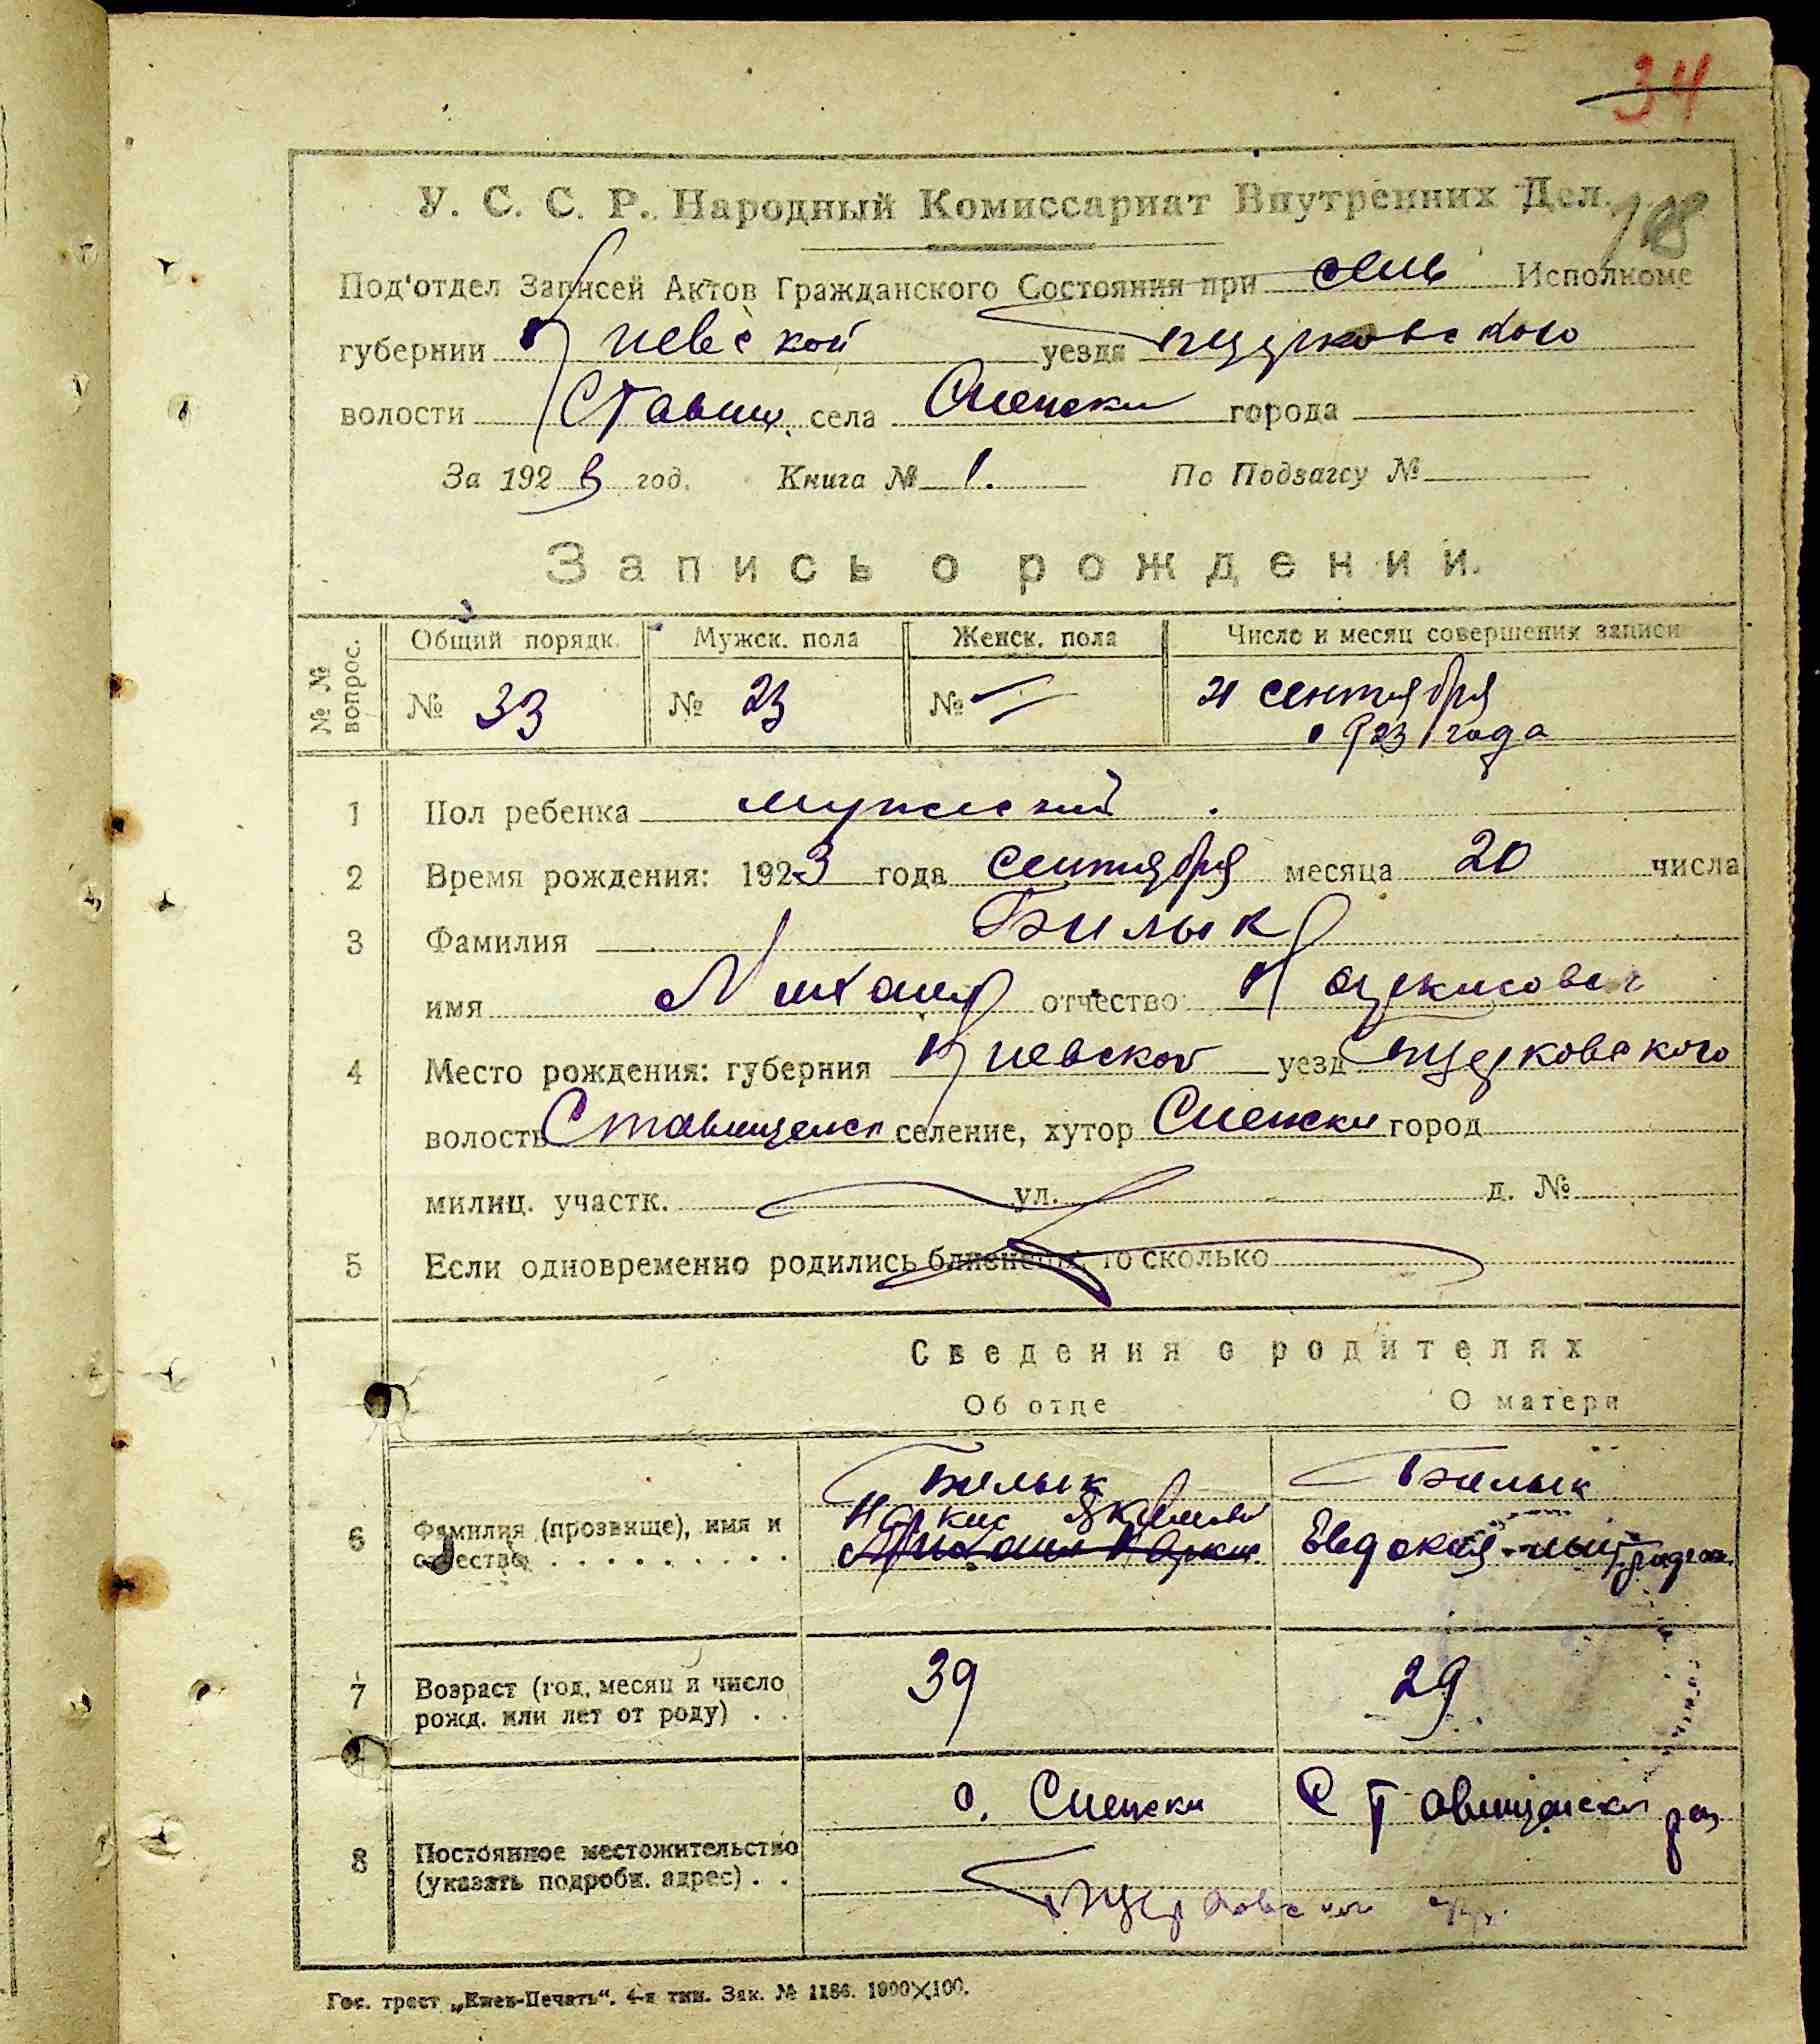 34
У. С. С. Р. Народный Комиссариат Внутренних Дел.
108
Под'отдел Записей Актов Гражданского Состояния при сель Исполкоме
губернии Киевской уезда
волости Ставищ. села города
За 1923 год. Книга № 1. По Подзагсу №
Запись о рождении.
№ № вопрос. Общий порядк. Мужск. пола Женск. пола Число и месяц совершения записи
№ 33 № 23 № 21 сентября
1923 года
1 Пол ребенка мужеский
2 Время рождения: 1923 года сентября месяца 20 числа
3 Фамилия Билык
имя Михаил отчество
4 Место рождения: губерния Киевской уезд
волость селение, хутор город
милиц. участк. ул. д. №
5 Если одновременно родились близнецы, то сколько
Сведения о родителях
Об отце О матери
Билык Билык
6 Фамилия (прозвище), имя и отчество Наркис Евдокия
7 Возраст (год, месяц и число рожд. или лет от роду) 39 29
с.
8 Постоянное местожительство (указать подробн. адрес)
Гос. трест „Киев-Печать“. 4-я тип. Зак. № 1186. 1000×100.